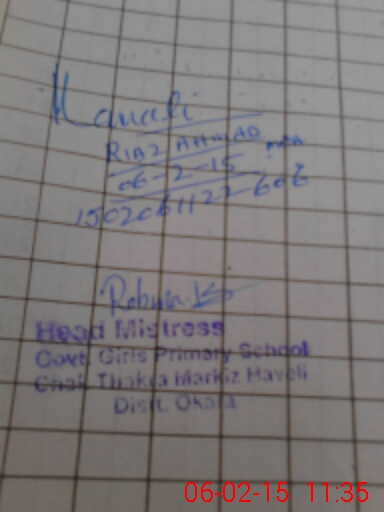 RIAZ AHMAD
06-2-15
1502061122606
Head Mistress
Govt. Girls Primary School
Chak Thakra Markiz Haveli
Distt. Okara
06-02-15 11:35